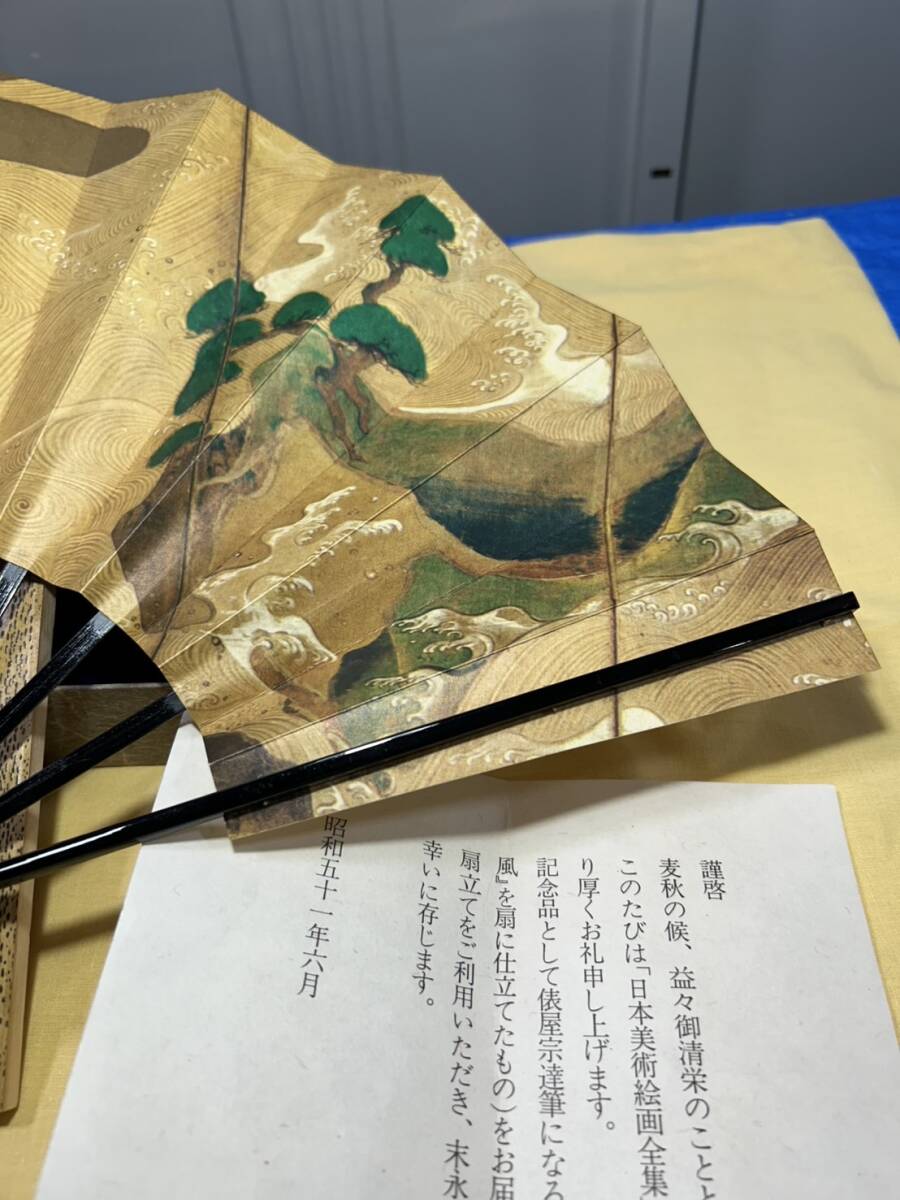 謹啓
麦秋の候、益々御清栄のことと
このたびは「日本美術絵画全集」
り厚くお礼申し上げます。
記念品として俵屋宗達筆になる
風』を扇に仕立てたもの）をお届
扇立てをご利用いただき、末永
幸いに存じます。
昭和五十一年六月